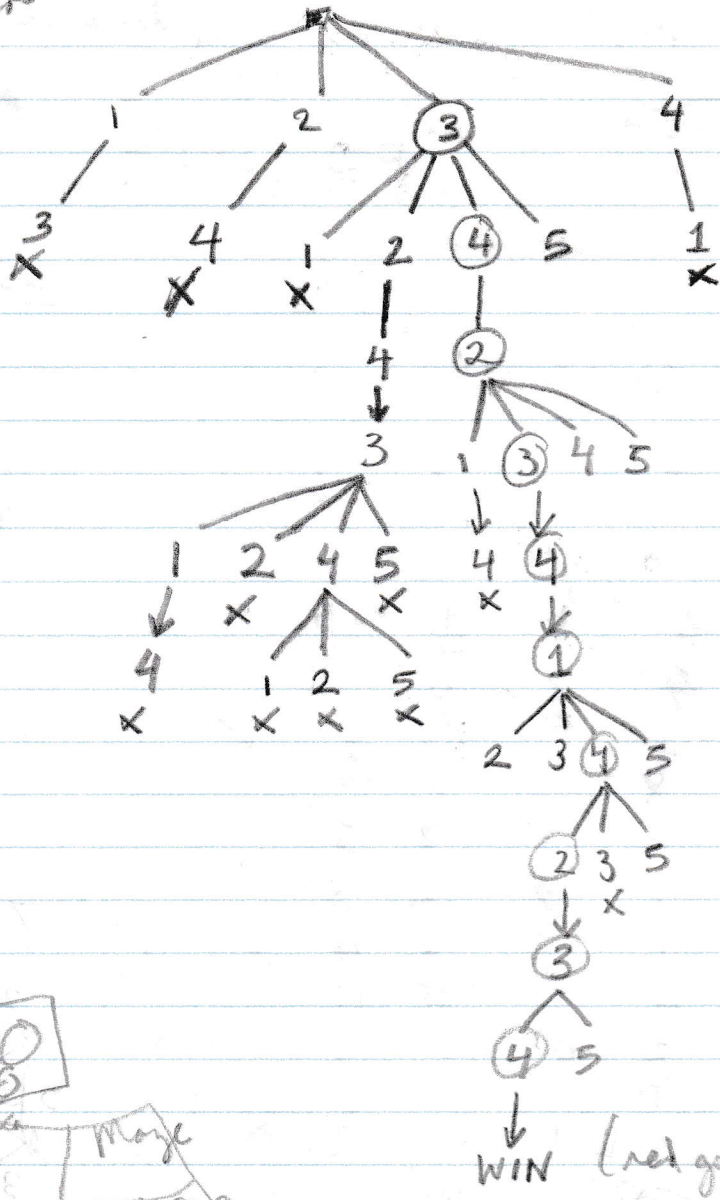 1 2 3 4
3 4 1 2 4 5 1
x x x x
4 2
3 1 3 4 5
1 2 4 5 4 4
x x x
4 1 2 5 1
x x x x
2 3 4 5
2 3 5
x
3
4 5
Maze
WIN (red